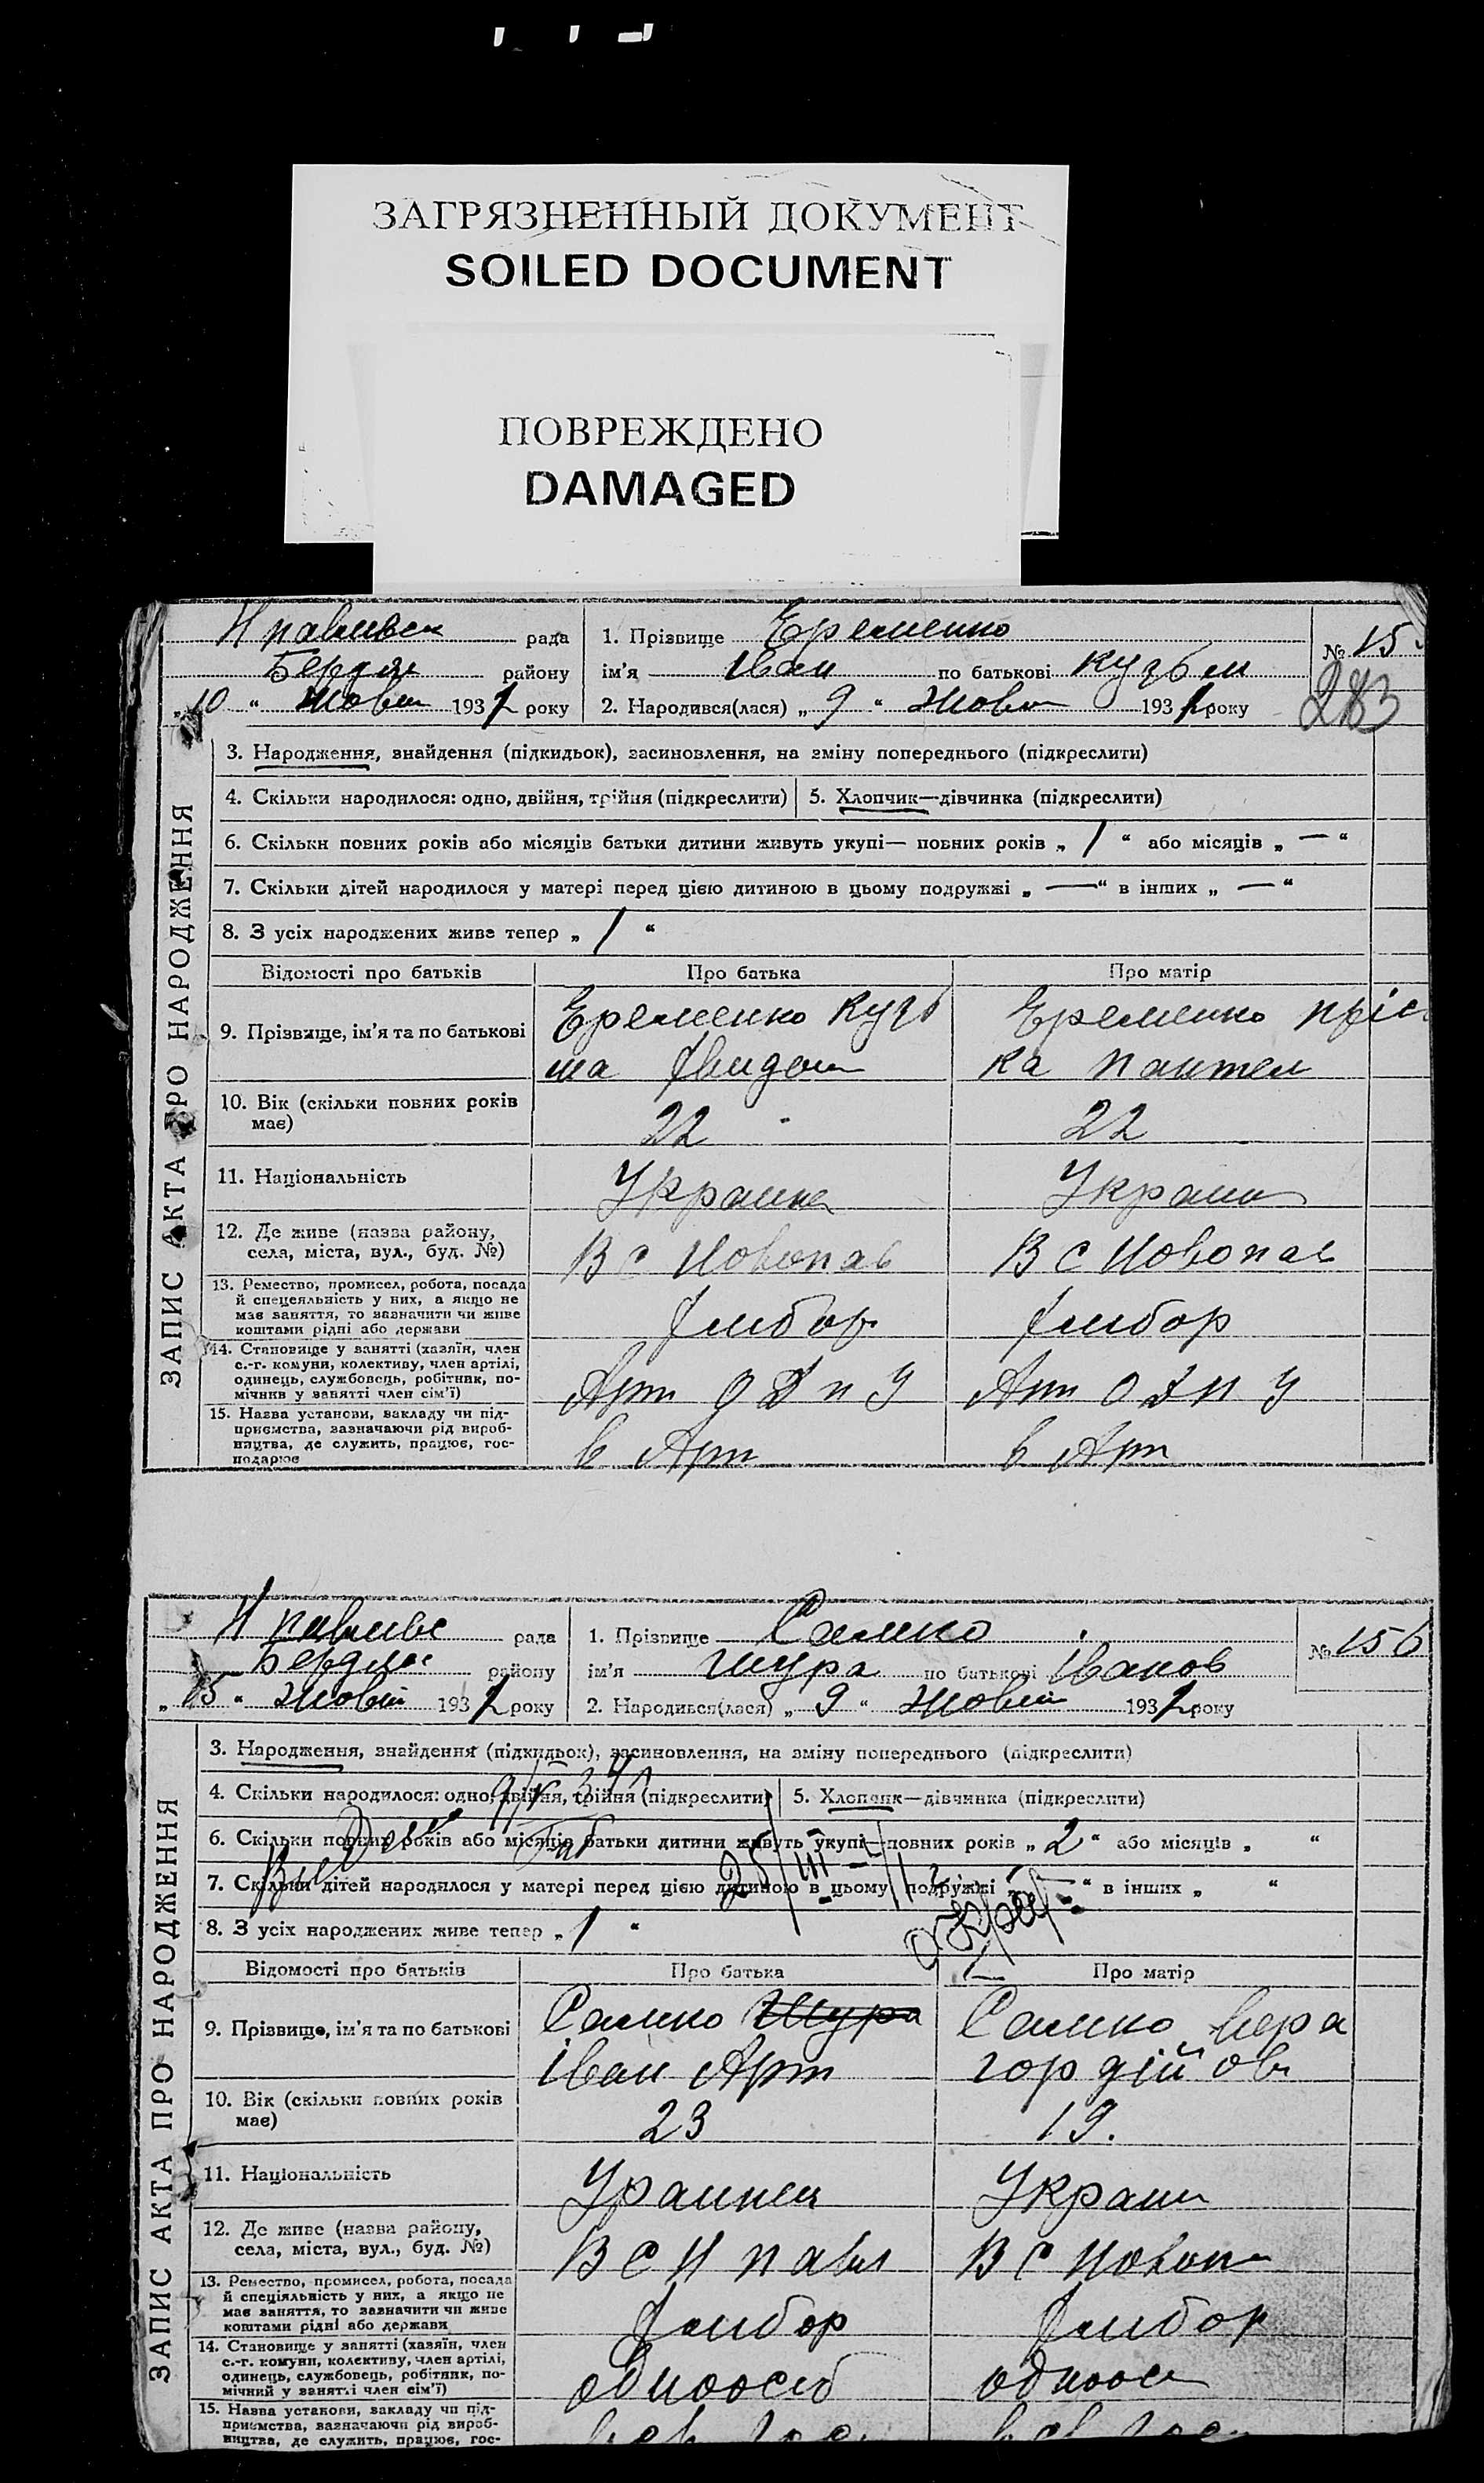 ЗАГРЯЗНЕННЫЙ ДОКУМЕНТ
SOILED DOCUMENT
ПОВРЕЖДЕНО
DAMAGED
рада 1. Прізвище Еременко № 15
району ім'я Іван по батькові Кузьм
„10“ Жовт 1932 року 2. Народився(лася) „9“ Жовт 1932 року 283
ЗАПИС АКТА ПРО НАРОДЖЕННЯ
3. Народження, знайдення (підкидьок), засиновлення, на зміну попереднього (підкреслити)
4. Скільки народилося: одно, двійня, трійня (підкреслити) 5. Хлопчик—дівчинка (підкреслити)
6. Скільки повних років або місяців батьки дитини живуть укупі— повних років „ 1 “ або місяців „ — “
7. Скільки дітей народилося у матері перед цією дитиною в цьому подружжі „ — “ в інших „ — “
8. З усіх народжених живе тепер „ 1 “
Відомості про батьків Про батька Про матір
9. Прізвище, ім'я та по батькові Еременко Кузь Еременко Пріс
ма ка Пантел
10. Вік (скільки повних років
має) 22 22
11. Національність Украине Украин
12. Де живе (назва району,
села, міста, вул., буд. №) В С Новопав В С Новопав
13. Ремество, промисел, робота, посада
й спеціяльність у них, а якщо не
має заняття, то зазначити чи живе
коштами рідні або держави
14. Становище у занятті (хазяїн, член
с.-г. комуни, колективу, член артілі,
одинець, службовець, робітник, по-
мічник у занятті член сім'ї) Арт О Д П У Арт О Д П У
15. Назва установи, закладу чи під-
приємства, зазначаючи рід вироб-
ництва, де служить, працює, гос-
подарює в Арт в Арт
рада 1. Прізвище Самко № 156
району ім'я Шура по батькові Іванов
„15“ Жовт 1932 року 2. Народився(лася) „9“ Жовт 1932 року
ЗАПИС АКТА ПРО НАРОДЖЕННЯ
3. Народження, знайдення (підкидьок), засиновлення, на зміну попереднього (підкреслити)
4. Скільки народилося: одно, двійня, трійня (підкреслити) 5. Хлопчик—дівчинка (підкреслити)
6. Скільки повних років або місяців батьки дитини живуть укупі—повних років „ 2 “ або місяців „ “
7. Скільки дітей народилося у матері перед цією дитиною в цьому подружжі „ — “ в інших „ “
8. З усіх народжених живе тепер „ 1 “
Відомості про батьків Про батька Про матір
9. Прізвище, ім'я та по батькові Самко Шура Самко Вера
Іван Арт Гордійов
10. Вік (скільки повних років
має) 23 19.
11. Національність Ураинец Украин
12. Де живе (назва району,
села, міста, вул., буд. №) В С Н Павл В С Новоп
13. Ремество, промисел, робота, посада
й спеціяльність у них, а якщо не
має заняття, то зазначити чи живе
коштами рідні або держави
14. Становище у занятті (хазяїн, член
с.-г. комуни, колективу, член артілі,
одинець, службовець, робітник, по-
мічний у занятті член сім'ї) одноосіб одноос
15. Назва установи, закладу чи під-
приємства, зазначаючи рід вироб-
ництва, де служить, працює, гос-